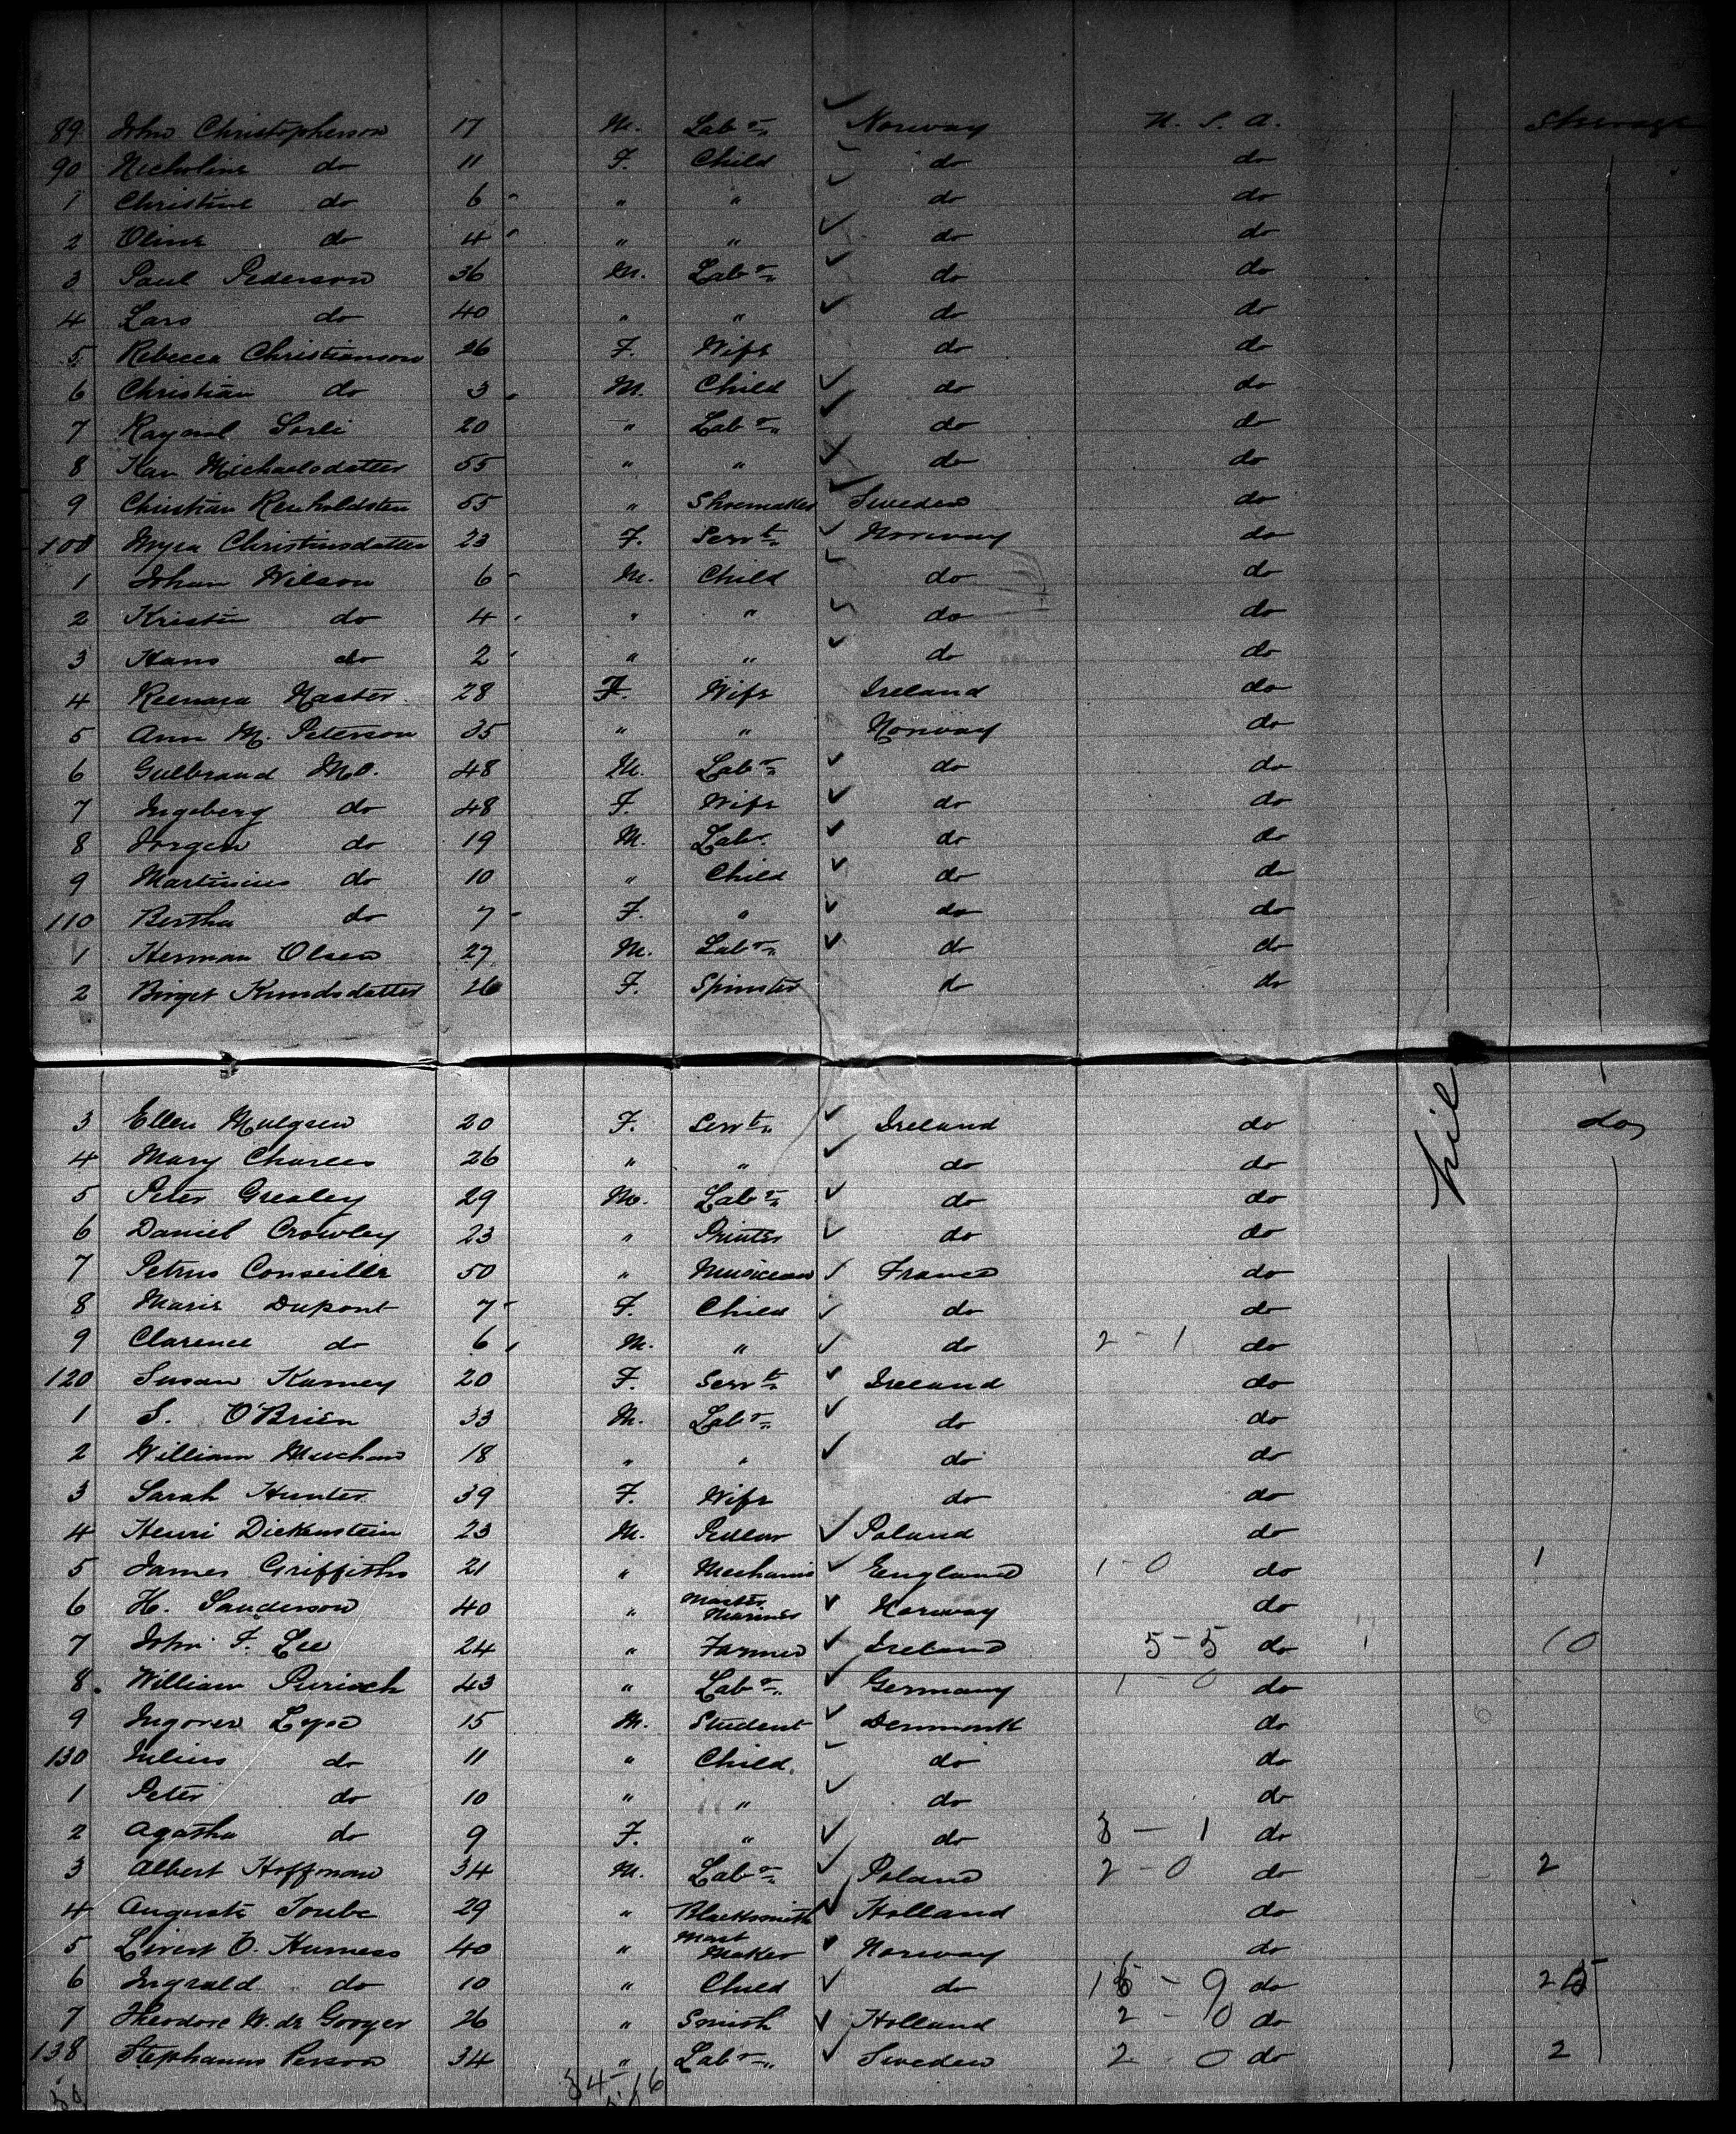 89 John Christopherson 17 M. Labr. ✓ Norway U. S. A. Steerage
90 Nicholine do 11 F. Child ✓ do do
1 Christine do 6 " " ✓ do do
2 Oline do 4 " " ✓ do do
3 Paul Pederson 36 M. Labr. ✓ do do
4 Lars do 40 " " ✓ do do
5 Rebecca Christianson 26 F. Wife do do
6 Christian do 3 M. Child ✓ do do
7 20 " Labr. ✓ do do
8 Kari Michaelsdatter 55 " " ✓ do do
9 Christian 55 " Shoemaker ✓ Sweden do
100 Christinsdatter 23 F. Servt. ✓ Norway do
1 Johan Wilson 6 M. Child ✓ do do
2 Kristin do 4 " " ✓ do do
3 Hans do 2 " " ✓ do do
4 28 F. Wife Ireland do
5 Ann M. Peterson 35 " " Norway do
6 Gulbrand Mo. 48 M. Labr. ✓ do do
7 Ingeberg do 48 F. Wife ✓ do do
8 Jorgen do 19 M. Labr. ✓ do do
9 Martinius do 10 " Child ✓ do do
110 Bertha do 7 F. " ✓ do do
1 Herman Olsen 27 M. Labr. ✓ do do
2 Birget Knudsdatter 26 F. Spinster do do
3 Ellen Mulgrew 20 F. Servt. ✓ Ireland do Nil do
4 Mary Charles 26 " " ✓ do do
5 Peter Grealey 29 M. Labr. ✓ do do
6 Daniel Crowley 23 " Printer ✓ do do
7 Petrus Conseille 50 " Musician ✓ France do
8 Marie Dupont 7 F. Child ✓ do do
9 Clarence do 6 M. " ✓ do 2 - 1 do
120 Susan 20 F. Servt. ✓ Ireland do
1 S. O'Brien 33 M. Labr. ✓ do do
2 William 18 " " ✓ do do
3 Sarah Hunter 39 F. Wife do do
4 Henri Dickenstein 23 M. Pedlar ✓ Poland do
5 James Griffiths 21 " Mechanic ✓ England 1 - 0 do 1
6 H. Sanderson 40 " Master Mariner ✓ Norway do
7 John F. Lee 24 " Farmer ✓ Ireland 5 - 5 do 10
8. William 43 " Labr. ✓ Germany 1 0 do
9 15 M. Student ✓ Denmark do
130 Julius do 11 " Child. ✓ do do
1 Peter do 10 " " ✓ do do
2 Agatha do 9 F. " ✓ do 3 - 1 do
3 Albert Hoffman 34 M. Labr. ✓ Poland 2 - 0 do 2
4 August 29 " Blacksmith ✓ Holland do
5 40 " Mast Maker Norway do
6 do 10 " Child ✓ do 9 do
7 Theodore W. de Gooyer 26 " Smith ✓ Holland 2 - 0 do
138 Stephanus Person 34 " Labr. ✓ Sweden 2 0 do 2
84-16